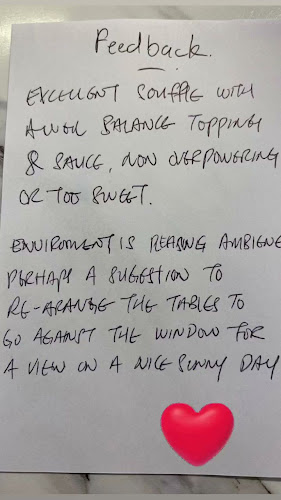 Feedback.
EXCELLENT SOUFFLE WITH
A WELL BALANCE TOPPING
& SAUCE, NON OVERPOWERING
OR TOO SWEET.
ENVIROMENT IS PLEASING AMBIENE
PERHAPS A SUGGESTION TO
RE-ARANGE THE TABLES TO
GO AGAINST THE WINDOW FOR
A VIEW ON A NICE SUNNY DAY